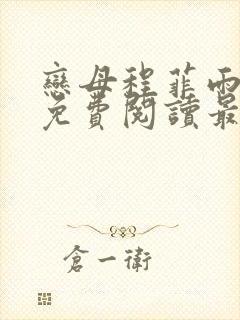 戀母程菲雨
免費閱讀最
倉一衛